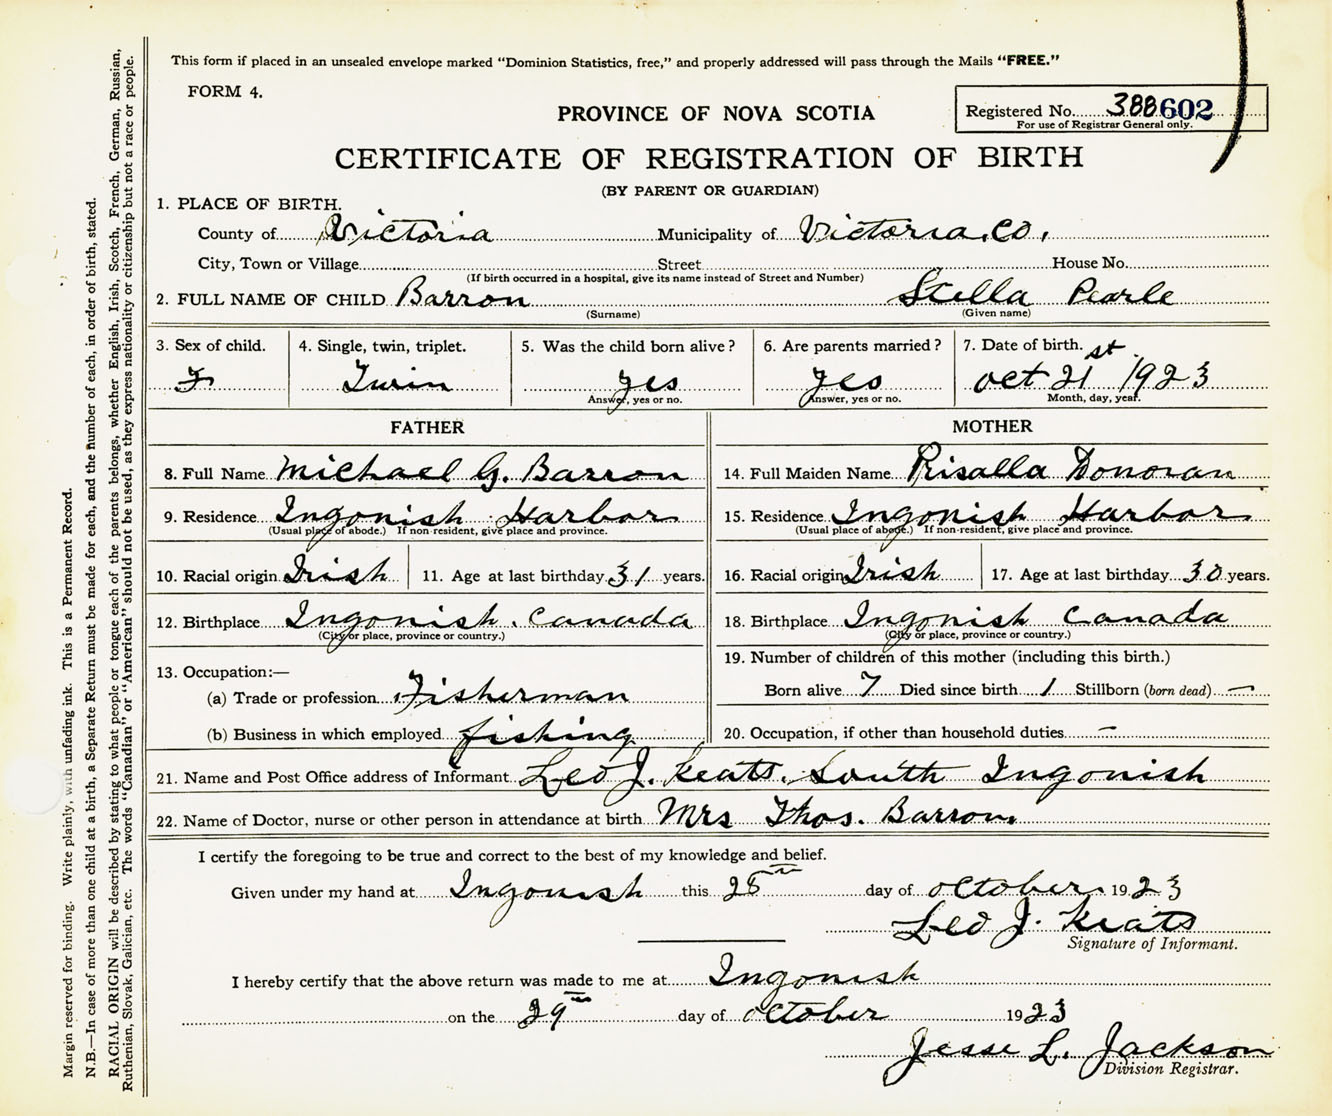 This form if placed in an unsealed envelope marked “Dominion Statistics, free,” and properly addressed will pass through the Mails “FREE.”
FORM 4.
PROVINCE OF NOVA SCOTIA
Registered No. 388602
For use of Registrar General only.
CERTIFICATE OF REGISTRATION OF BIRTH
(BY PARENT OR GUARDIAN)
1. PLACE OF BIRTH.
County of Victoria Municipality of Victoria Co.
City, Town or Village Street House No.
(If birth occurred in a hospital, give its name instead of Street and Number)
2. FULL NAME OF CHILD Barron Stella Pearle
(Surname) (Given name)
3. Sex of child. 4. Single, twin, triplet. 5. Was the child born alive? 6. Are parents married? 7. Date of birth.
F Twin yes yes Oct 21st 1923
Answer, yes or no. Answer, yes or no. Month, day, year.
FATHER MOTHER
8. Full Name Michael G. Barron 14. Full Maiden Name Risalla Donovan
9. Residence Ingonish Harbor 15. Residence Ingonish Harbor
(Usual place of abode.) If non-resident, give place and province. (Usual place of abode.) If non-resident, give place and province.
10. Racial origin Irish 11. Age at last birthday 31 years. 16. Racial origin Irish 17. Age at last birthday 30 years.
12. Birthplace Ingonish. Canada 18. Birthplace Ingonish Canada
(City or place, province or country.) (City or place, province or country.)
13. Occupation:— 19. Number of children of this mother (including this birth.)
(a) Trade or profession Fisherman Born alive 7 Died since birth 1 Stillborn (born dead) —
(b) Business in which employed fishing 20. Occupation, if other than household duties —
21. Name and Post Office address of Informant Leo J. Keats. South Ingonish
22. Name of Doctor, nurse or other person in attendance at birth Mrs Thos. Barron
I certify the foregoing to be true and correct to the best of my knowledge and belief.
Given under my hand at Ingonish this 28th day of October 1923
Leo J. Keats
Signature of Informant.
I hereby certify that the above return was made to me at Ingonish
on the 29th day of October 1923
Jesse L. Jackson
Division Registrar.
Margin reserved for binding. Write plainly, with unfading ink. This is a Permanent Record.
N.B.—In case of more than one child at a birth, a Separate Return must be made for each, and the number of each, in order of birth, stated.
RACIAL ORIGIN will be described by stating to what people or tongue each of the parents belongs, whether English, Irish, Scotch, French, German, Russian,
Ruthenian, Slovak, Galician, etc. The words “Canadian” or “American” should not be used, as they express nationality or citizenship but not a race or people.